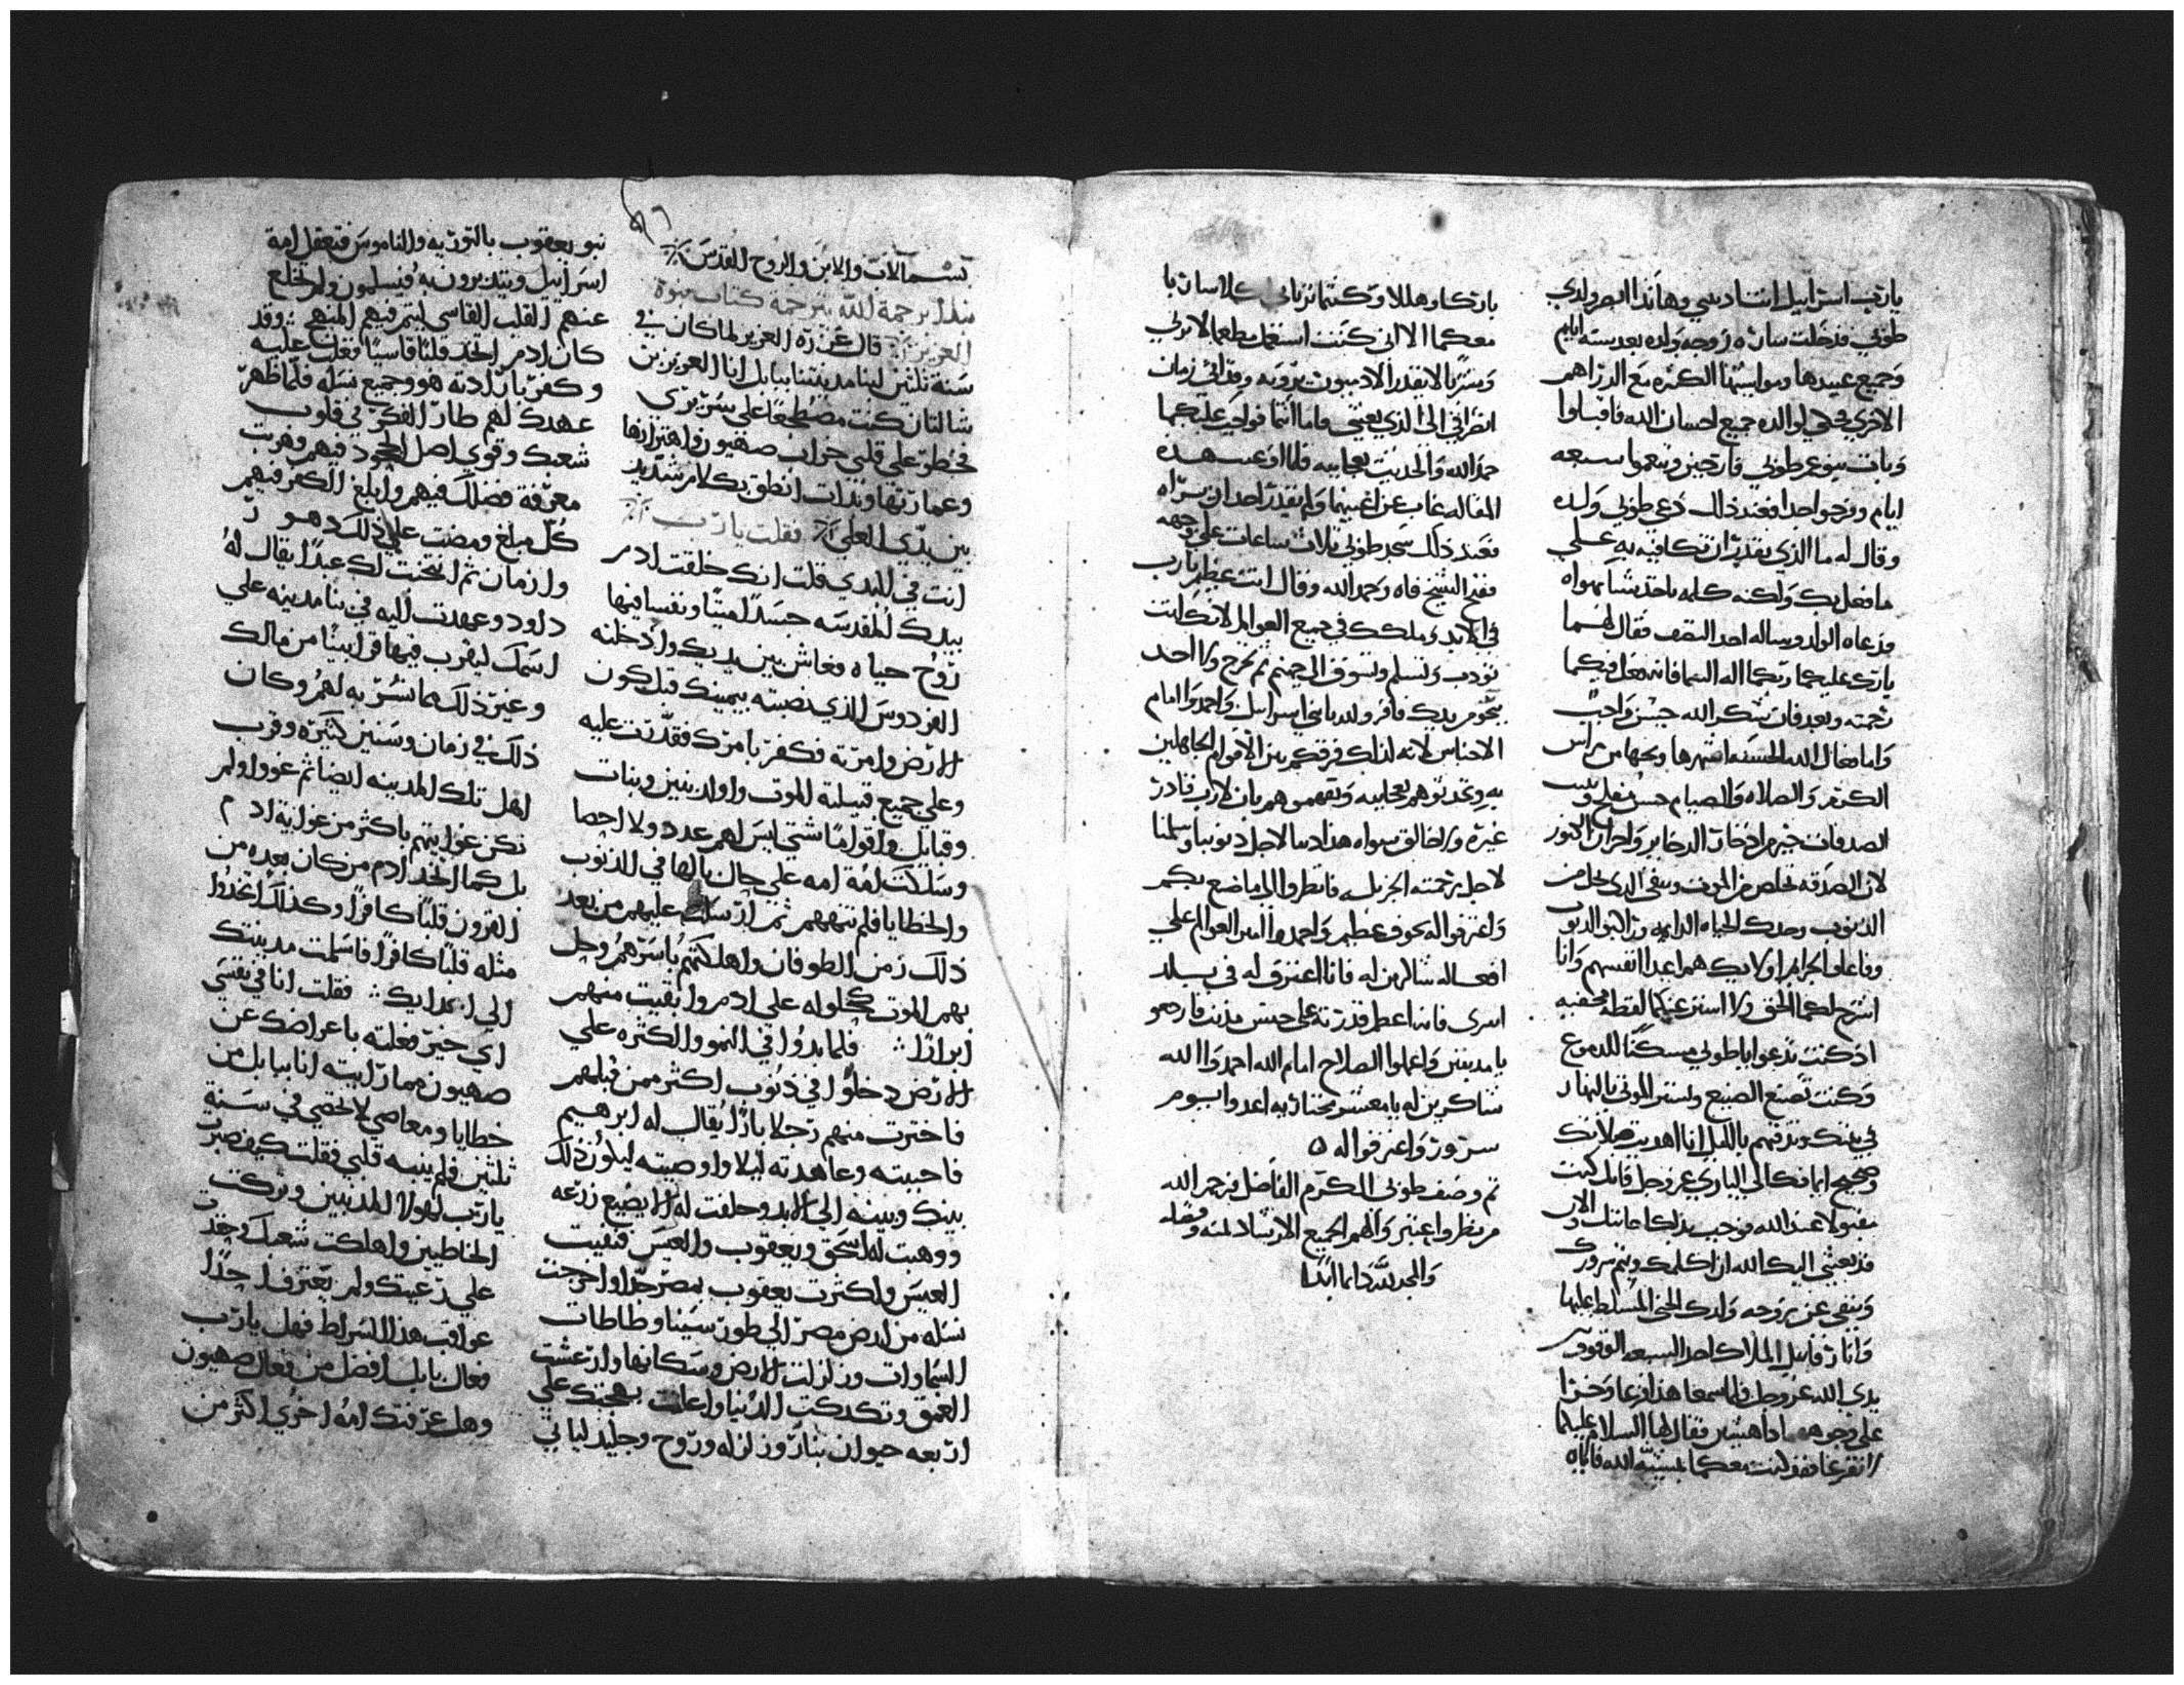 يارب اسرائيل انت ادبتني وهاندا ابصر ولدي
طوبي فدخلت ساره زوجه ولده بعد سته ايام
وجميع عبيدها ومواشيها الكثره مع الدراهم
الاخري فحكي لوالده جميع احسان الله فاقبلوا
ايام وفرحوا جدا فعند ذلك دعي طوبي ولده
وقال له ما الذي نقدر ان نكافيه به علي
ما فعل بك ولكنه كلمه ياخذ مهما يهواه
فدعاه الولد وساله اخذ النصف فقال لهما
بارك عليكما ربكما اله السما فانه فعل فيكما
رحمته وبعد فان شكر الله حسن واجب
واما فعال الله الحسنه اشهرها
الكتم والصلاه والصيام حسن
الصدقات خير من ادخار الدخاير واحراز الكنوز
لان الصدقه تخلص من الموت وتنقي الذي تحل من
الذنوب وتجدك الحياه الدايمه
وفاعلوا الجرايم اوليك هم اعدا انفسهم وانا
اشرح لكما الحق ولا استر عنكما لفظه مخفيه
اذ كنت تدعوا يا طوبي مسكبا للدموع
وكنت تصنع الصنيع وتستر الموتي بالنهار
في بيتك وتدفنهم بالليل انا اهديت صلاتك
مقبولا عند الله
قد بعثني اليك الله ان اكلمك ويتم سرورك
وننفي عن زوجه ولدك الجني المسلط عليها
وانا رفاييل الملاك احد السبعه الوقوف
يدي الله عز وجل فلما سمعا هذا فزعا وخرا
علي وجوههما داهشين فقال لهما السلام عليكما
لا تفزعا فقد كنت معكما بمشية الله فاياه
باركا وهللا وكنتما ترياني
معكما الا اني كنت استعمل طعما لا يري
وشربا لا يقدر الادميون يروه وقد اتي زمان
انصرافي الي الذي بعثني فاما انتما فواجب عليكما
حمد الله والحديث بعجايبه فلما اوعب هده
المقاله غاب عن اعينهما ولم يقدر احد ان يراه
فعند ذلك سجد طوبي ثلاث ساعات علي وجهه
ففتح الشيخ فاه وحمد الله وقال انت عظيم يارب
في الابد وملكك في جميع العوالم لانك انت
تودب وتسلم وتسوق الي جهنم ثم تخرج ولا احد
ينجو من يدك فاقروا لله يا بني اسرائيل واحمدوا امام
الاجناس لانه لذلك فرقكم بين الاقوام الجاهلين
به وتحدثوهم بعجايبه وتفهموهم بان لا رب قادر
غيره ولا خالق سواه هذا ادبنا لاجل ذنوبنا وسلمنا
لاجل رحمته الجزيله فانظروا الي ما صنع بكم
واعترفوا له بخوف عظيم واحمدوا امير العوالم علي
افعاله شاكرين له فانا اعترف له في بلد
اسري فانه اعطي قدرته علي جنس مذنب فارجعو
يا مدنبين واعملوا الصلاح امام الله احمدوا الله
شاكرين له يا معشر مختاريه اعدوا بيوم
سرور واعترفوا له
تم وصف طوبي المكرم الفاضل فرحم الله
من نظر واعتبر والهم الجميع الارشاد بمنه وفضله
والمجد لله دايما ابدا
بسم الاب والابن والروح القدس
نبتدا برحمة الله بترجمة كتاب نبوة
العزيز قال عزره العزير لما كان في
سنة ثلثين لبنا مدينتنا ببابل انا العزير بن
شالتان كنت مضطجعا علي سريري
فخطر علي قلبي خراب صهيون واهتزازها
وعمارتها وبدات انطق بكلام شديد
بين يدي العلي فقلت يارب
انت في البدي قلت انك خلقت ادم
بيدك المقدسه جسدا ميتا ونفسا فيها
روح حياه فعاش بين يديك وادخلته
الفردوس الذي نصبته بيمينك قبل كون
الارض وامرته فكفر بامرك فقدرت عليه
وعلي جميع قبيلته الموت واولد بنين وبنات
وقبايل واقواما شتي ليس لهم عدد ولا احصا
وسلكت امة امه علي حال بالها في الذنوب
والخطايا فلم تنههم ثم ارسلت عليهم من بعد
ذلك زمن الطوفان واهلكتهم باسرهم وحل
بهم الموت كحلوله علي ادم وابقيت منهم
ابرارا فلما بدوا في النمو والكثره علي
الارض دخلوا في ذنوب اكثر ممن قبلهم
فاخترت منهم رجلا بارا يقال له ابرهيم
فاحببته وعاهدته ليلا واوصيته ليكون ذلك
بينك وبينه الي الابد وحلفت له الا يضيع زرعه
ووهبت له اسحق ويعقوب والعيس فنفيت
العيس واكثرت يعقوب بمصر جدا واخرجت
نسله من ارض مصر الي طور سينا وطاطات
السماوات وزلزلت الارض وسكانها وارعشت
العمق وتكدكت الدنيا واعلنت بهجتك علي
اربعه حيوان بنار وزلزله وروح وجليد لياتي
نبو يعقوب بالتوريه والناموس فتعقل امة
اسرائيل ويتدبرون به فيسلمون ولم تخلع
عنهم القلب القاسي ليتم فيهم المنهج وقد
كان ادم اتخذ قلبا قاسيا فغلب عليه
وكفر بارادته هو وجميع نسله فلما ظهر
عهدك لهم طار الفكر في قلوب
شعبك وقوي اصل الجحود فيهم وهربت
معرفة فضلك فيهم وابلغ الكفر فيهم
كل مبلغ ومضت علي ذلك دهور
وازمان ثم انتخبت لك عبدا يقال له
داود وعهدت اليه في بنا مدينه علي
اسمك ليقرب فيها قرابينا من مالك
وغير ذلك مما تسر به لهم وكان
ذلك في زمان وسنين كثيره وقرب
اهل تلك المدينه ايضا ثم غووا ولم
تكن غوايتهم باكثر من غواية ادم
بل كما اتخذ ادم من كان بعده من
القرون قلبا كافرا وكذلك اتخذوا
مثله قلبا كافرا فاسلمت مدينتك
الي اعدايك فقلت انا في نفسي
اي خير فعلته باعراضك عن
صهيون مما رايته انا ببابل من
خطايا ومعاصي لا تحصي في سنة
ثلثين فلم ينبه قلبي فقلت كيف صبرت
يارب لهولا المدنبين وتركت
الخاطيين واهلكت شعبك وحقدت
علي رعيتك ولم يعترف احدا
عواقب هذا الصراط فهل يارب
فعال بابل افضل من فعال صهيون
وهل عرفتك امه اخري اكثر من